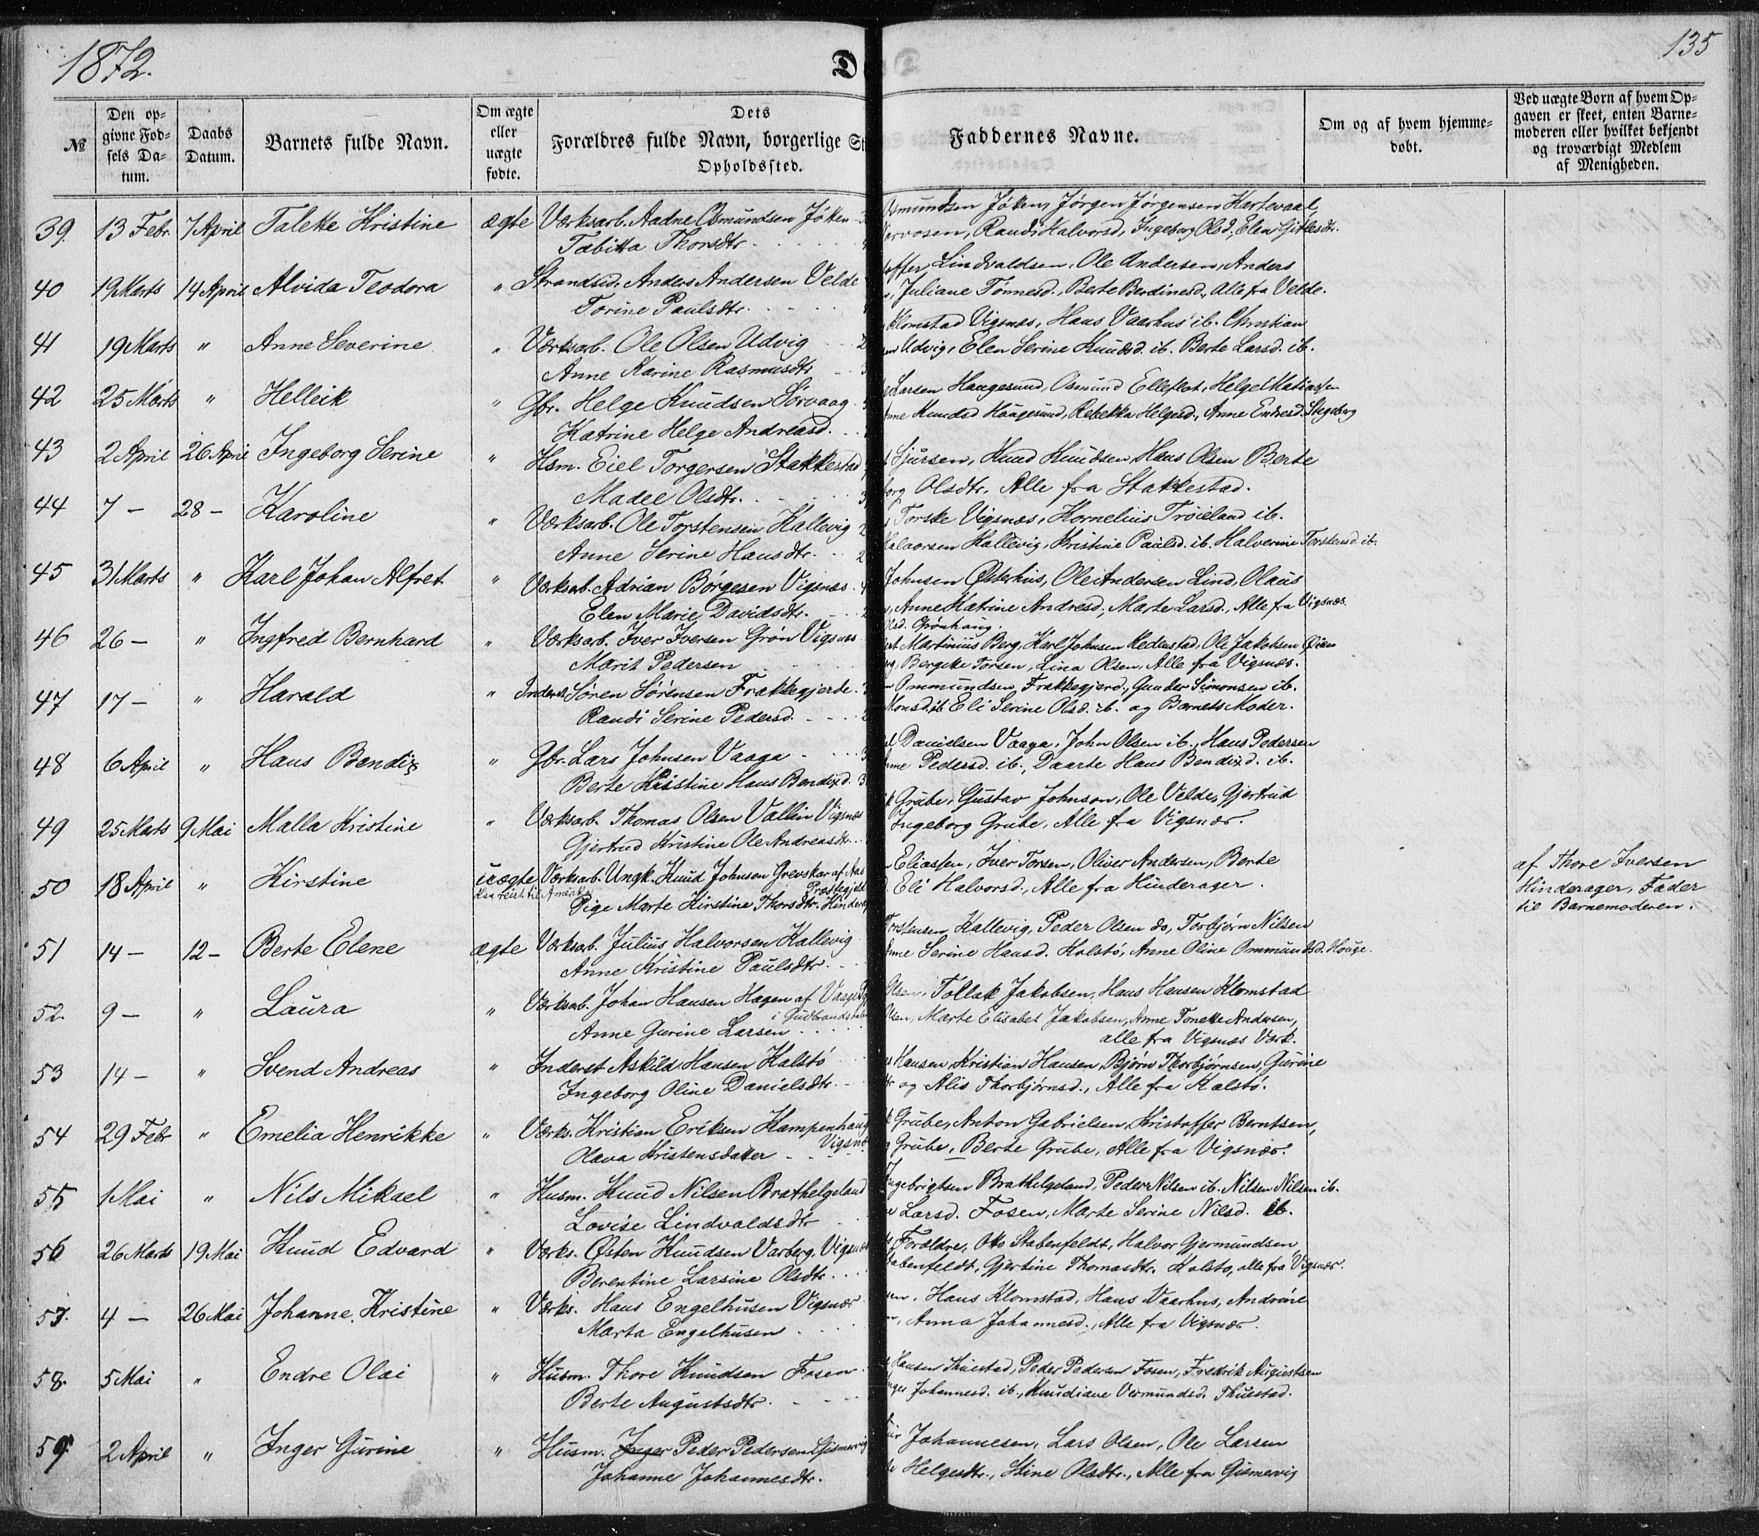 1872.
135
D
№
Den op-
givne Fød-
sels Da-
tum.
Daabs
Datum.
Barnets fulde Navn.
Om ægte
eller
uægte
fødte.
Dets
Forældres fulde Navn, borgerlige St
Opholdssted.
Faddernes Navne.
Om og af hvem hjemme-
døbt.
Ved uægte Børn af hvem Op-
gaven er skeet, enten Barne-
moderen eller hvilket bekjendt
og troværdigt Medlem
af Menigheden.
39. 13 Febr. 7 April Talette Kristine ægte Værksarb. Aadne Osmundsen Jøken
Tabitta Thorsdtr.
Osmundsen Jøken, Jørgen Jørgensen Hartevaal,
Randi Halvorsd, Ingeborg Olsd, Elen Gitlesdtr.
40 19 Marts 14 April Alvida Teodora " Strandsd. Anders Andersen Velde
Torine Paulsdtr.
Lindvaldsen, Ole Andersen, Anders
Juliane Tønnesd., Berte Berdinesd., Alle fra Velde.
41 19 Marts " Anne Severine " Værksarb. Ole Olsen Udvig
Anne Karine Rasmusdtr
Klomstad Vigsnæs, Hans Vaarhus ib. Christian
Udvig, Elen Serine Knudsd. ib. Berte Larsd. ib.
42 25 Marts " Helleik " Gbr. Helge Knudsen Sørvaag
Katrine Helge Andreasd.
Larsen Haugesund, Osmund Elleflot, Helge Matiassen
Knudsd Haugesund, Rebekka Helgesd., Anne Endresd. Stegeberg
43 2 April 26 April Ingeborg Serine " Hsm. Eiel Torgersen Stakkestad
Madel Olsdtr.
Sjursen, Knud Knudsen, Hans Olsen Berte
Olsdtr, Alle fra Stakkestad.
44 7 — 28 — Karoline " Værksarb. Ole Torstensen Kallevig
Anne Serine Hansdtr.
Torske Vigsnæs, Kornelius Trøieland ib.
Halvorsen Kallevig, Kristine Paulsd. ib. Halverine Torstensd. ib.
45 31 Marts " Karl Johan Alfret " Værksarb. Adrian Børgesen Vigsnæs
Elen Marie Davidsdtr.
Johnsen Østerhus, Ole Andersen Lind, Olaus
Anne Katrine Andresd, Marte Larsd., Alle fra Vigsnæs.
Grønhaug.
46 26 — " Ingfred Bernhard " Værksarb. Iver Iversen Grøn Vigsnæs
Marit Pedersen
Martinius Berg, Karl Johnsen Hedenstad, Ole Jakobsen Øien
Torsen, Lina Olsen, Alle fra Vigsnæs.
47 17 — " Harald " Inderst Søren Sørensen Frakkegjerde
Randi Serine Pedersd.
Ommundsen Frakkegjerd., Gunder Simonsen ib.
Monsd. ib Eli Serine Olsd. ib. og Barnets Moder.
48 6 April " Hans Bendix " Gbr. Lars Johnsen Vaaga
Berte Kristine Hans Bendixd.
Danielsen Vaaga, John Olsen ib., Hans Pedersen
Pedersd. ib., Daarte Hans Bendixd. ib.
49 25 Marts 9 Mai Malla Kristine " Værksarb. Thomas Olsen Vallin Vigsnæs
Gjertrud Kristine Ole Andreasdtr.
Grube, Gustav Johnson, Ole Velde, Gjertrud
Ingeborg Grube, Alle fra Vigsnæs.
50 18 April " Kirstine uægte Værksarb. Ungk. Knud Johnsen Grevskar af Aas
Pige Marte Kirstine Thorsdtr. Hinderag
Eliassen, Iver Torsen, Oliver Andersen, Berte
Eli Halvorsd., Alle fra Hinderager.
af Thore Iversen
Hinderager, Fader
til Barnemoderen.
51 14 — 12 — Berte Elene ægte Værksarb. Julius Halvorsen Kallevig
Anne Kristine Paulsdtr.
Torstensen Kallevig, Peder Olsen do, Torbjørn Nilsen
Serine Hansd. Kalstø, Anne Oline Ommundsd. Hauge.
52. 9 — " Laura " Værksarb. Johan Hansen Hagen af Vaage
i Gudbrandsdalen
Anne Gurine Larsen
Tollak Jakobsen, Hans Hansen Klomstad
Marte Elisabet Jakobsen, Anne Tonette Andersen,
alle fra Vigsnæs Værk.
53 14 — " Svend Andreas " Inderst Askild Hansen Kalstø
Ingeborg Oline Danielsdtr
Hansen, Kristian Hansen, Bjørn Thorbjørnsen, Gurine
og Alis Thorbjørnsd., Alle fra Kalstø.
54 29 Febr " Emelia Henrikke " Værks. Kristian Eriksen Kampenhaug
Vigsnæs
Olava Kristensdatter
Grube, Anton Gabrielsen, Kristoffer Berntsen,
Grube, Berte Grube, Alle fra Vigsnæs.
55 1 Mai " Nils Mikael " Husm. Knud Nilsen Brathelgeland
Lovise Lindvaldsdtr
Ingebrigtsen Brathelgeland, Peder Nilsen ib. Nilsen Nilsen ib.
Larsd. Fosen, Marte Serine Nilsd. ib.
56 26 Marts 19 Mai Knud Edvard " Værks. Østen Knudsen Varberg, Vigsnæs
Berentine Larsine Olsdtr
Forældre, Otto Stabenfeldt, Halvor Gjermundsen
Stabenfeldt, Gjertine Thomasdtr. Kalstø, alle fra Vigsnæs.
57. 4 — 26 Mai Johanne Kristine " Værks. Hans Engelhusen Vigsnæs
Marta Engelhusen
Hans Klomstad, Hans Vaarhus, Andrine
Anna Johannesd., Alle fra Vigsnæs.
58. 5 Mai " Endre Olai " Husm. Thore Knudsen Fosen
Berte Augustsdtr.
Hansen Thuestad, Peder Pedersen Fosen, Fredrik Augustsen
Johannesd. ib., Knudiane Vermundsd. Thuestad.
59 2 April " Inger Gurine " Husm. Inger Peder Pedersen Gismervig
Johanne Johannesdtr.
Johannesen, Lars Olsen, Ole Larsen
Helgesdtr., Stine Olsdtr., Alle fra Gismervig